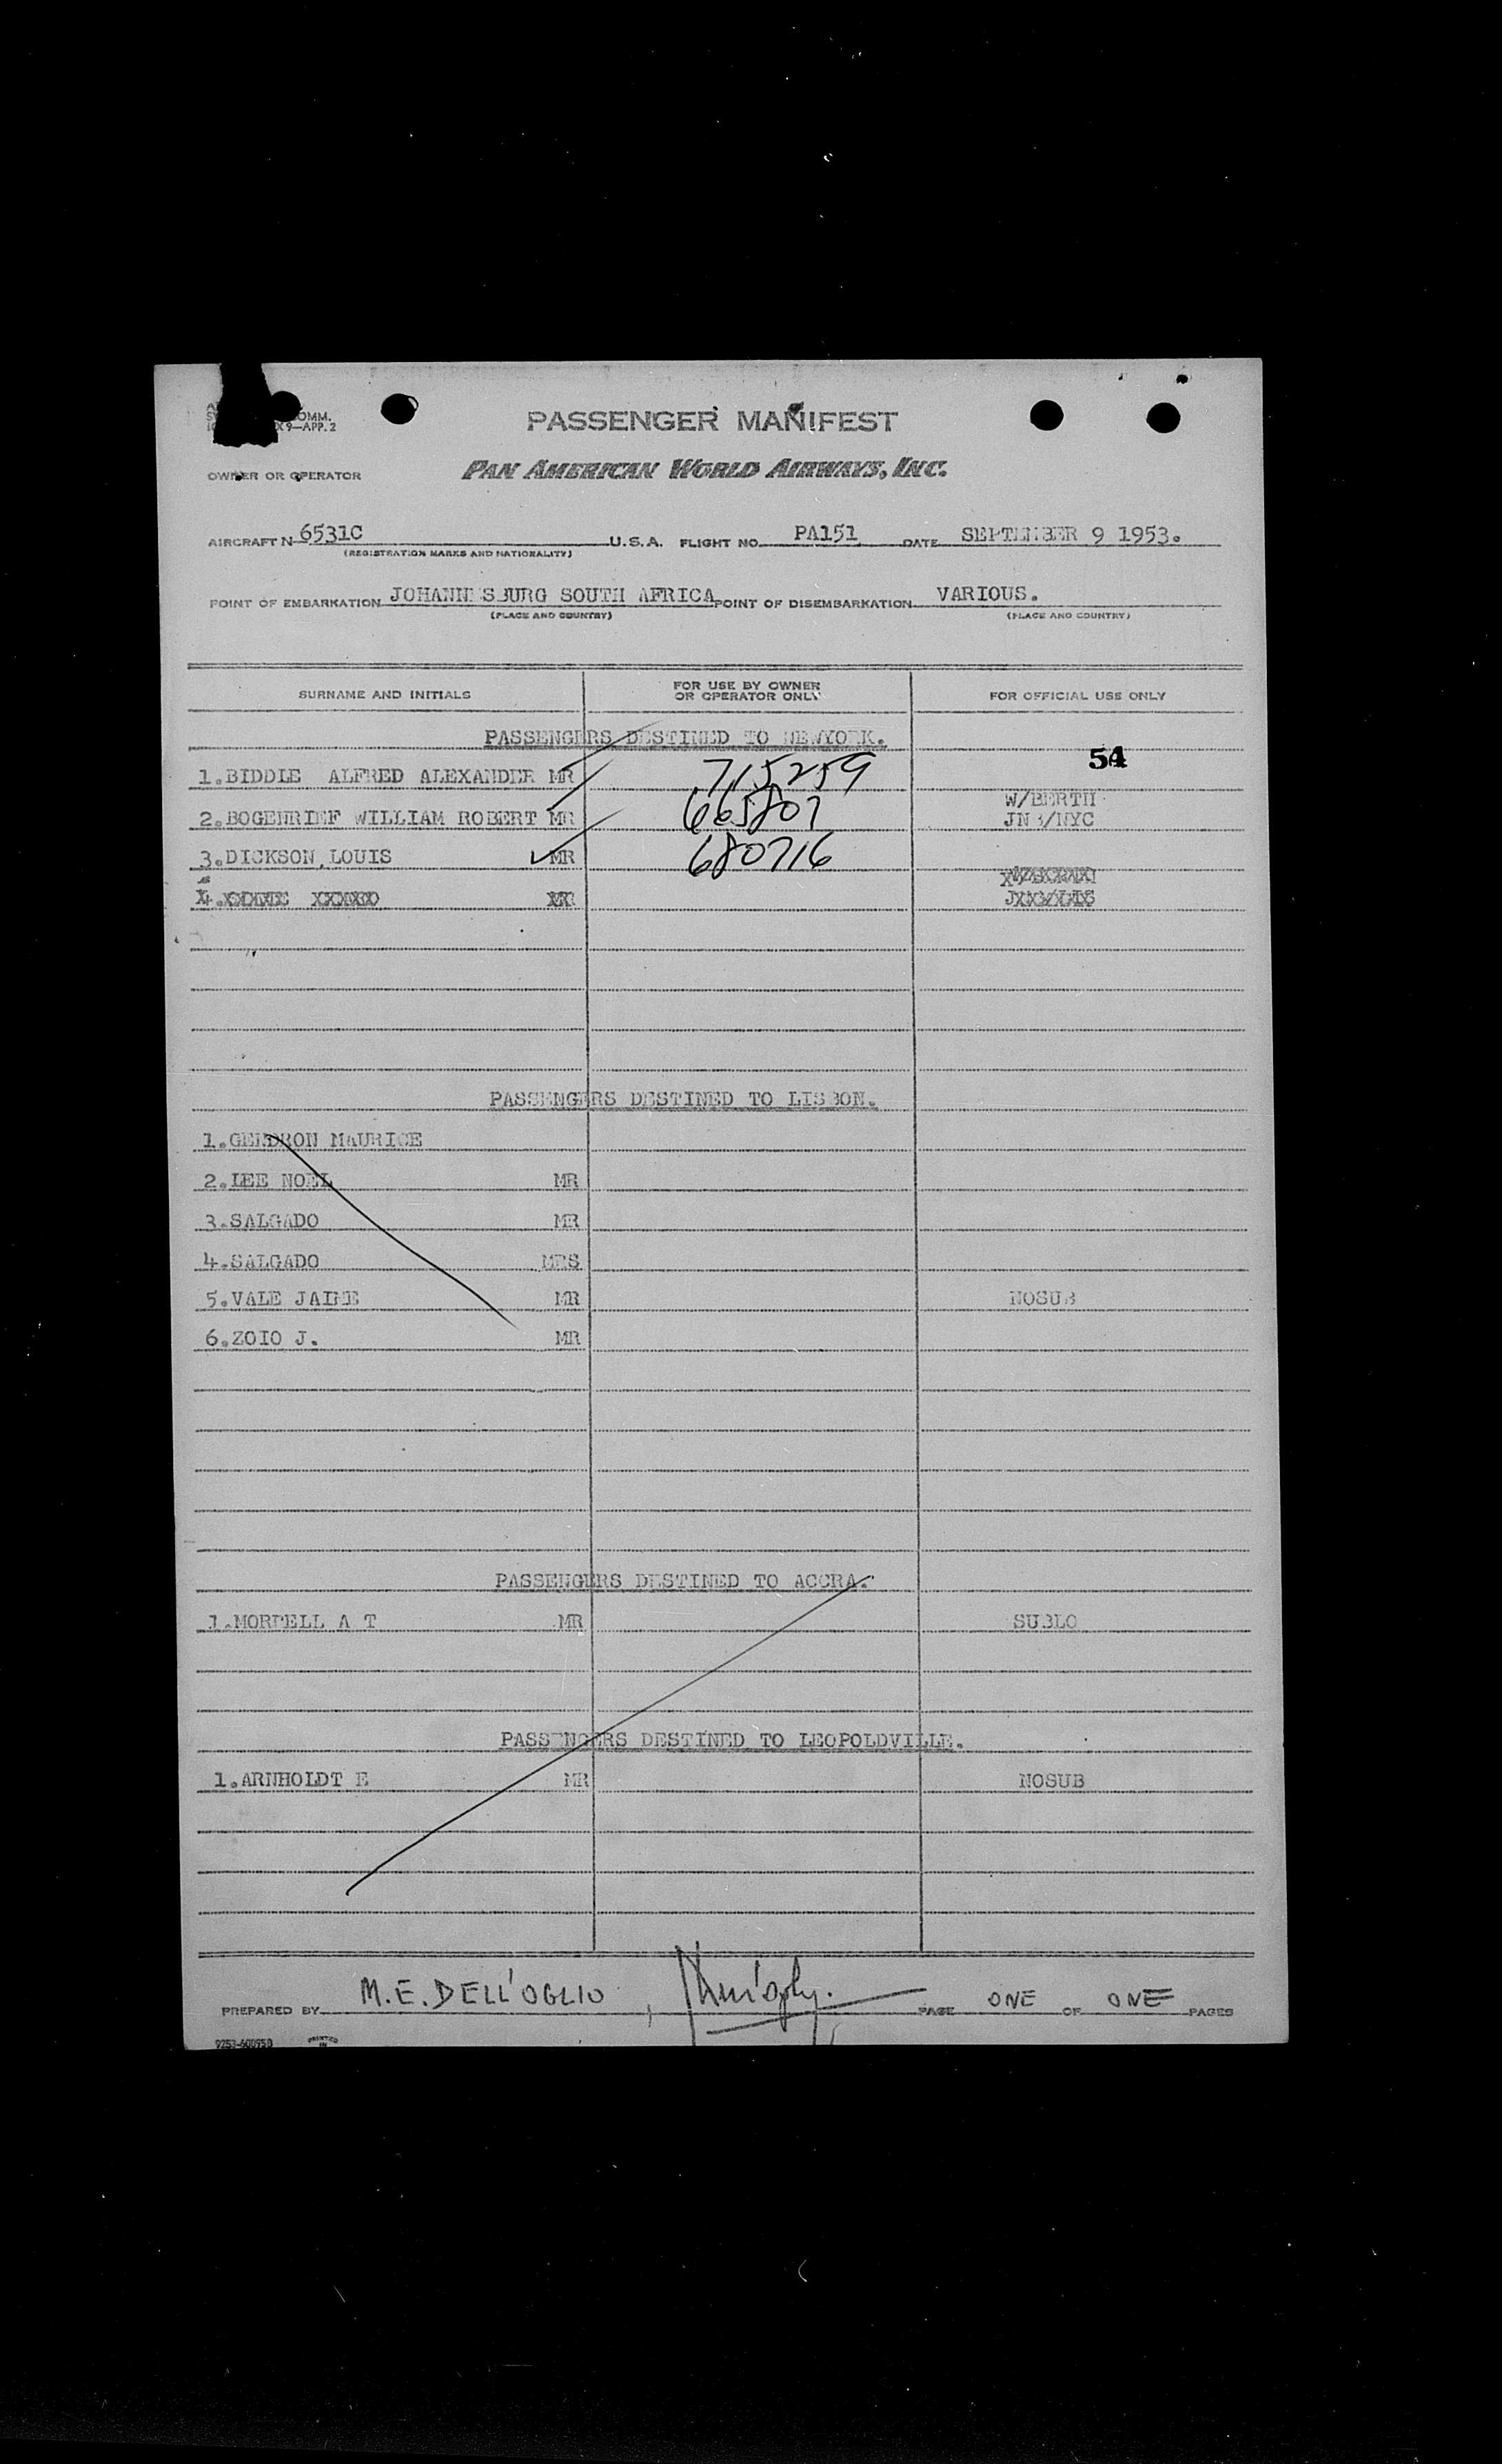 OMM.
X 9—APP. 2
PASSENGER MANIFEST
OWNER OR OPERATOR PAN AMERICAN WORLD AIRWAYS, INC.
AIRCRAFT N 6531C U.S.A. FLIGHT NO. PA151 DATE SEPTEMBER 9 1953.
(REGISTRATION MARKS AND NATIONALITY)
POINT OF EMBARKATION JOHANNESBURG SOUTH AFRICA POINT OF DISEMBARKATION VARIOUS.
(PLACE AND COUNTRY) (PLACE AND COUNTRY)
SURNAME AND INITIALS FOR USE BY OWNER OR OPERATOR ONLY FOR OFFICIAL USE ONLY
PASSENGERS DESTINED TO NEWYORK.
54
1.BIDDLE ALFRED ALEXANDER MR 715259
W/BERTH
2.BOGENRIEF WILLIAM ROBERT MR 665807 JNB/NYC
3.DICKSON, LOUIS MR 680716
4.
PASSENGERS DESTINED TO LISBON.
1.GENDRON MAURICE
2.LEE NOEL MR
3.SALGADO MR
4.SALGADO MRS
5.VALE JAIME MR NOSUB
6.ZOIO J. MR
PASSENGERS DESTINED TO ACCRA.
1.MORTELL A T MR SUBLO
PASSENGERS DESTINED TO LEOPOLDVILLE.
1.ARNHOLDT E MR NOSUB
PREPARED BY M.E. DELL'OGLIO, PAGE ONE OF ONE PAGES
PRINTED
IN